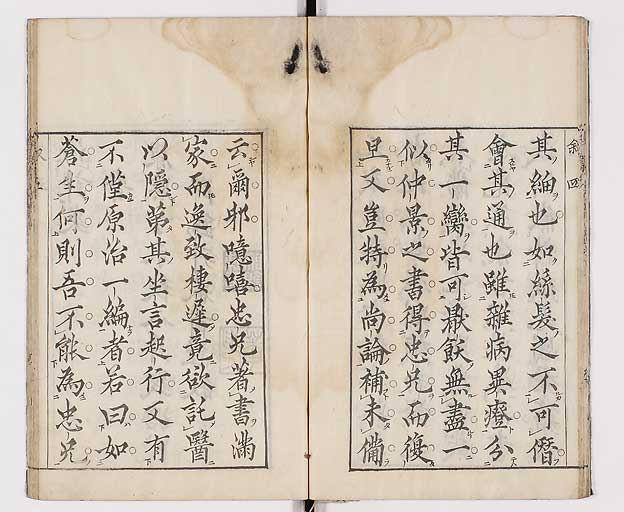 叙四
其細也如絲髮之不可僭
會其通也雖雜病異證分
其一臠皆可厭飫無盡一
似仲景之書得忠兄而復
旦又豈特為尚論補未備
云爾邪噫嘻忠兄著書滿
家而逸致棲遲竟欲託醫
以隱第其坐言起行又有
不僅原治一編者若曰如
蒼生何則吾不能為忠兄